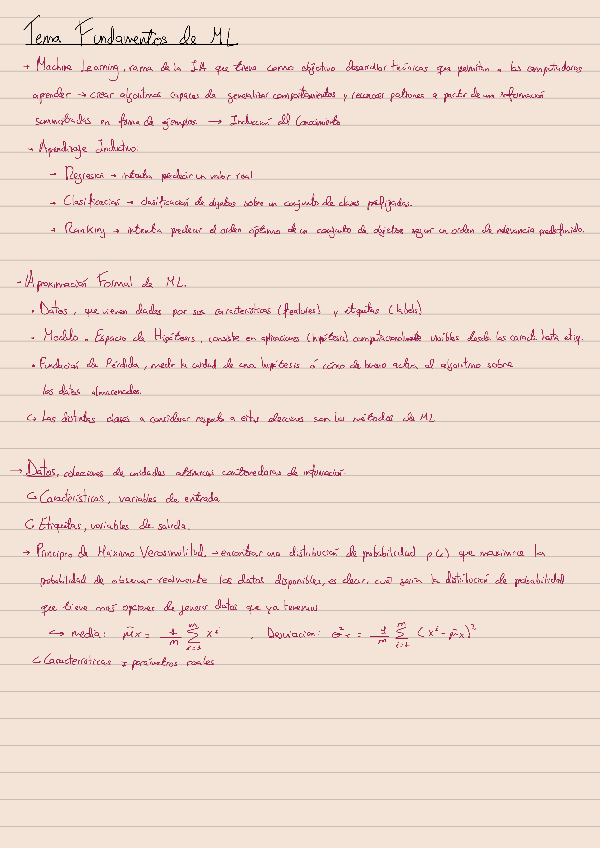 Tema Fundamentos de ML
→ Machine Learning, rama de la IA que tiene como objetivo desarrollar técnicas que permitan a las computadoras
aprender → crear algoritmos capaces de generalizar comportamientos y reconocer patrones a partir de una información
suministrada en forma de ejemplos → Inducción del Conocimiento
→ Aprendizaje Inductivo:
→ Regresión → intenta predecir un valor real
→ Clasificación → clasificación de objetos sobre un conjunto de clases prefijadas.
→ Ranking → intenta predecir el orden óptimo de un conjunto de objetos según un orden de relevancia predefinido.
- Aproximación Formal de ML.
• Datos, que vienen dados por sus características (features) y etiquetas (labels)
• Modelo o Espacio de Hipótesis, consiste en aplicaciones (hipótesis) computacionalmente visibles desde las caract. hasta etiq.
• Función de Pérdida, mede la calidad de una hipótesis ó cómo de bueno actúa el algoritmo sobre
los datos almacenados.
↪ Las distintas clases a considerar respecto a estas decisiones son los métodos de ML
→ Datos, colecciones de unidades atómicas contenedoras de información.
↪ Características, variables de entrada
↪ Etiquetas, variables de salida.
→ Principio de Máxima Verosimilitud → encontrar una distribución de probabilidad p(x) que maximice la
probabilidad de observar realmente los datos disponibles, es decir, cuál sería la distribución de probabilidad
que tiene más opciones de generar datos que ya tenemos
↪ media: μ̃x = 1/m Σ_{i=1}^{m} x^i , Desviación: σ²x = 1/m Σ_{i=1}^{m} (x^i - μ̃x)²
↪ Características ≠ parámetros reales